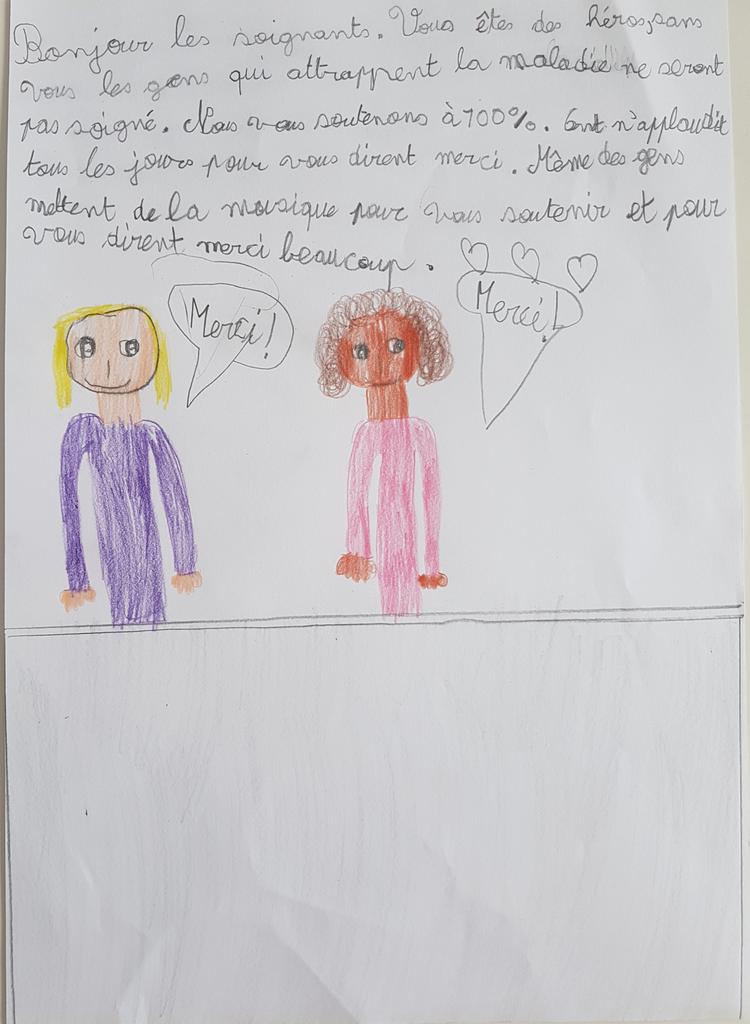 Bonjour les soignants. Vous êtes des héros, sans
vous les gens qui attrappent la maladie ne seront
pas soigné. Nous vous soutenons à 100%. Ont n'applaudit
tous les jours pour vous dirent merci. Même des gens
mettent de la musique pour vous soutenir et pour
vous dirent merci beaucoup.
Merci!
Merci!